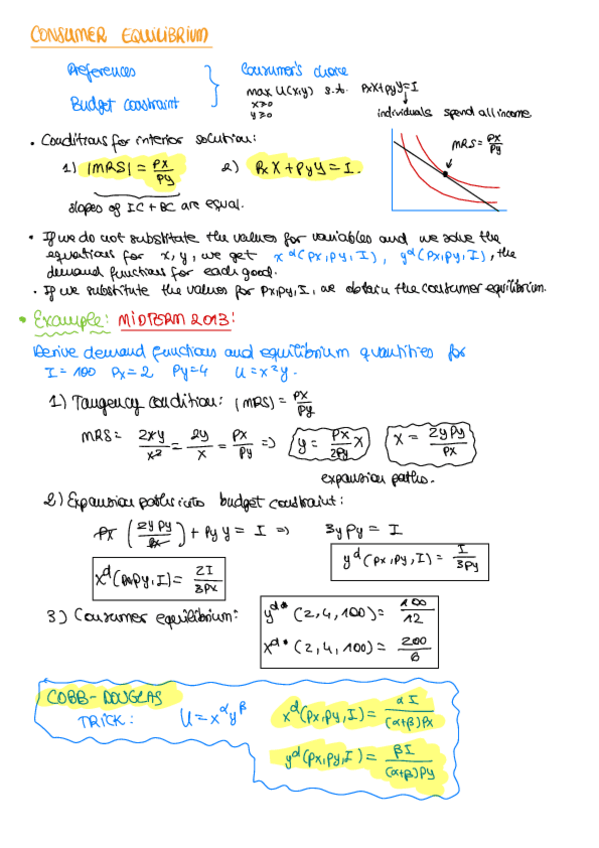 CONSUMER EQUILIBRIUM
Preferences
Budget constraint
Consumer's choice
max U(x,y) s.t. PxX+PyY=I
x≥0
y≥0
individuals spend all income
• Conditions for interior solution:
1) |MRS| = Px/Py
2) PxX + PyY = I.
slopes of IC + BC are equal.
MRS = Px/Py
• If we do not substitute the values for variables and we solve the
equations for x, y, we get x^d(Px,Py,I), y^d(Px,Py,I), the
demand functions for each good.
• If we substitute the values for Px,Py,I, we obtain the consumer equilibrium.
• Example: MIDTERM 2013:
Derive demand functions and equilibrium quantities for
I = 100 Px=2 Py=4 U=x²y.
1) Tangency condition: |MRS| = Px/Py
MRS = 2xy/x² = 2y/x = Px/Py => y = Px/2Py x
x = 2yPy/Px
expansion paths.
2) Expansion paths into budget constraint:
Px (2yPy/Px) + Py y = I => 3yPy = I
y^d(Px,Py,I) = I/3Py
x^d(Px,Py,I) = 2I/3Px
3) Consumer equilibrium:
y^d* (2,4,100) = 100/12
x^d* (2,4,100) = 200/6
COBB-DOUGLAS
TRICK: U = x^α y^β
x^d(Px,Py,I) = αI/(α+β)Px
y^d(Px,Py,I) = βI/(α+β)Py